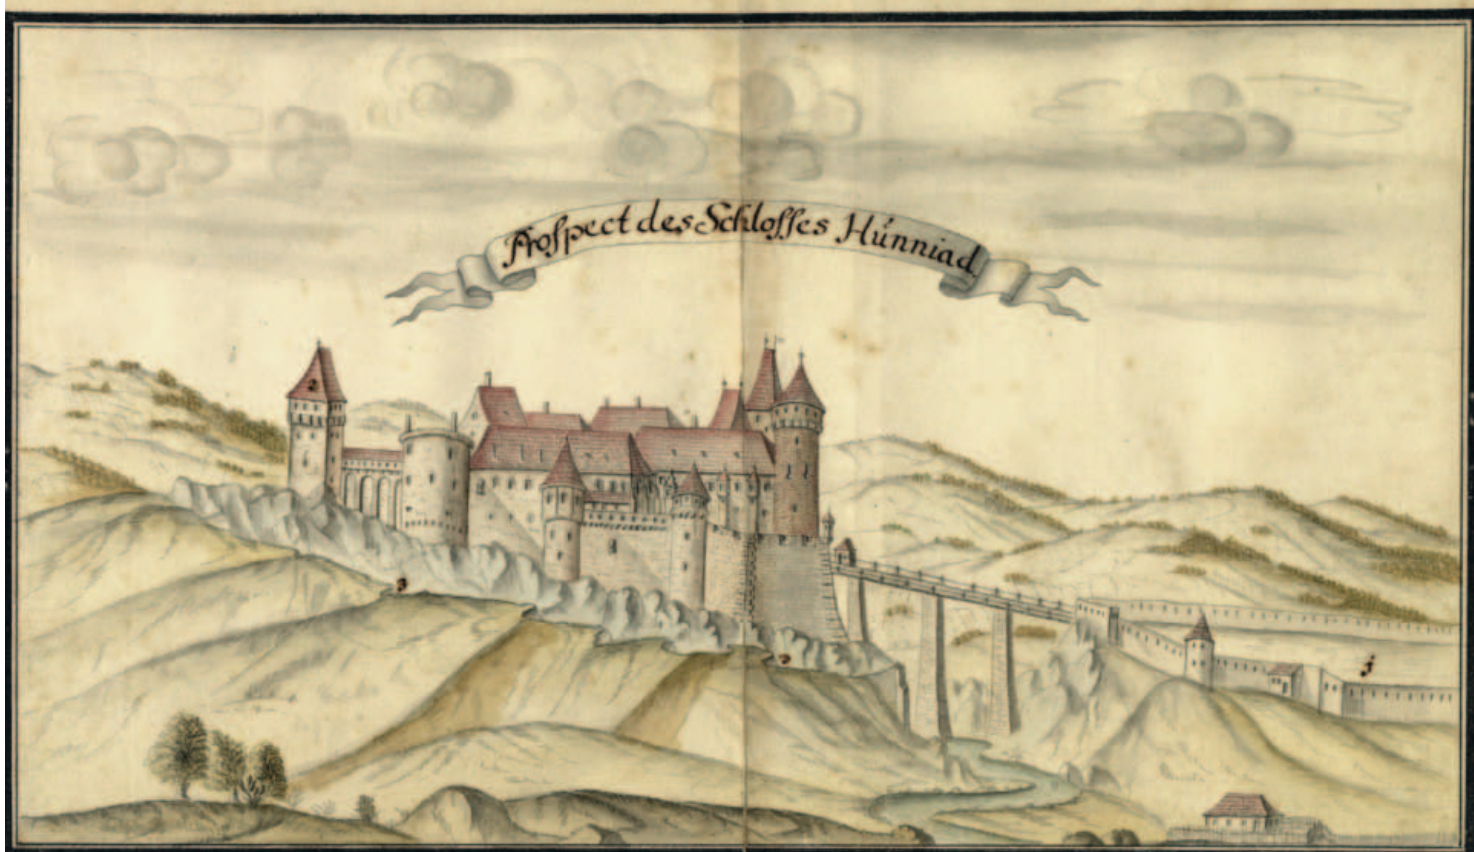 Proſpect des Schloſſes Hünniad.
2
3
j